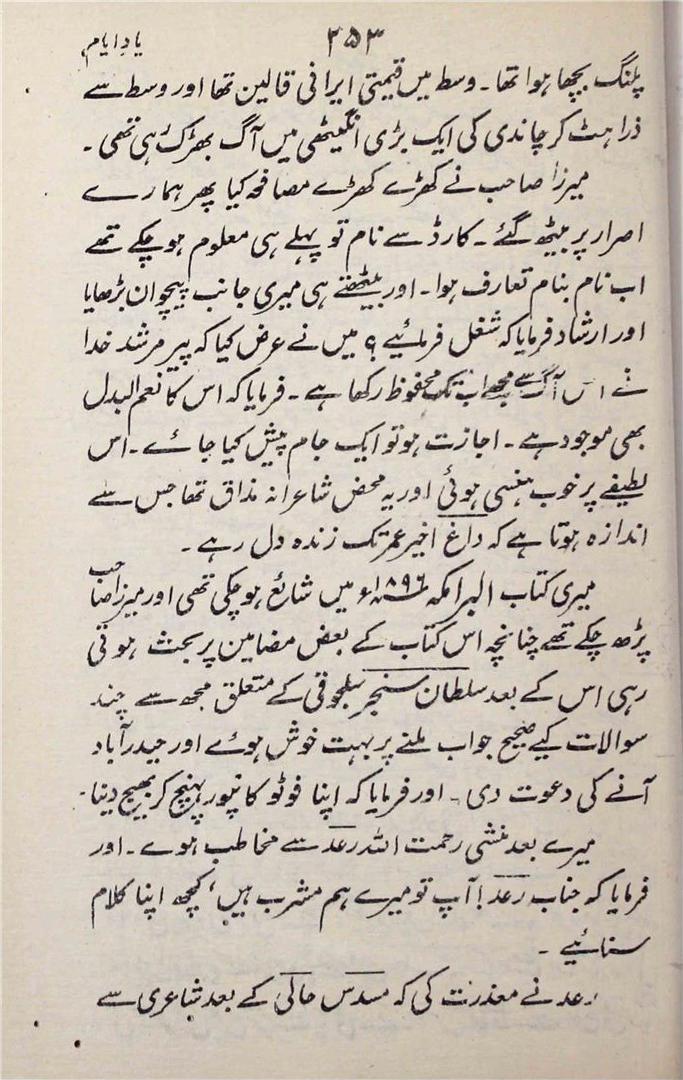 یادِ ایام ۳۵۳
پلنگ بچھا ہوا تھا۔ وسط میں قیمتی ایرانی قالین تھا اور وسط سے
ذرا ہٹ کر چاندی کی ایک بڑی انگیٹھی میں آگ بھڑک رہی تھی۔
میرزا صاحب نے کھڑے کھڑے مصافحہ کیا پھر ہمارے
اصرار پر بیٹھ گئے۔ کارڈ سے نام تو پہلے ہی معلوم ہوچکے تھے
اب نام بنام تعارف ہوا۔ اور بیٹھتے ہی میری جانب پیچوان بڑھایا
اور ارشاد فرمایا کہ شغل فرمائیے؟ میں نے عرض کیا کہ پیر مرشد خدا
نے اس آگ سے مجھے اب تک محفوظ رکھا ہے۔ فرمایا کہ اس کا نعم البدل
بھی موجود ہے۔ اجازت ہو تو ایک جام پیش کیا جائے۔ اس
لطیفے پر خوب ہنسی ہوئی اور یہ محض شاعرانہ مذاق تھا جس سے
اندازہ ہوتا ہے کہ داغ اخیر عمر تک زندہ دل رہے۔
میری کتاب البرامکہ ۱۸۹۶ء میں شائع ہوچکی تھی اور میرزا صاحب
پڑھ چکے تھے چنانچہ اس کتاب کے بعض مضامین پر بحث ہوتی
رہی اس کے بعد سلطان سنجر سلجوقی کے متعلق مجھ سے چند
سوالات کیے صحیح جواب ملنے پر بہت خوش ہوئے اور حیدرآباد
آنے کی دعوت دی۔ اور فرمایا کہ اپنا فوٹو کانپور پہنچ کر بھیج دینا۔
میرے بعد منشی رحمت اللہ رعد سے مخاطب ہوے۔ اور
فرمایا کہ جناب رعد! آپ تو میرے ہم مشرب ہیں، کچھ اپنا کلام
سنائیے۔
رعد نے معذرت کی کہ مسدس حالی کے بعد شاعری سے